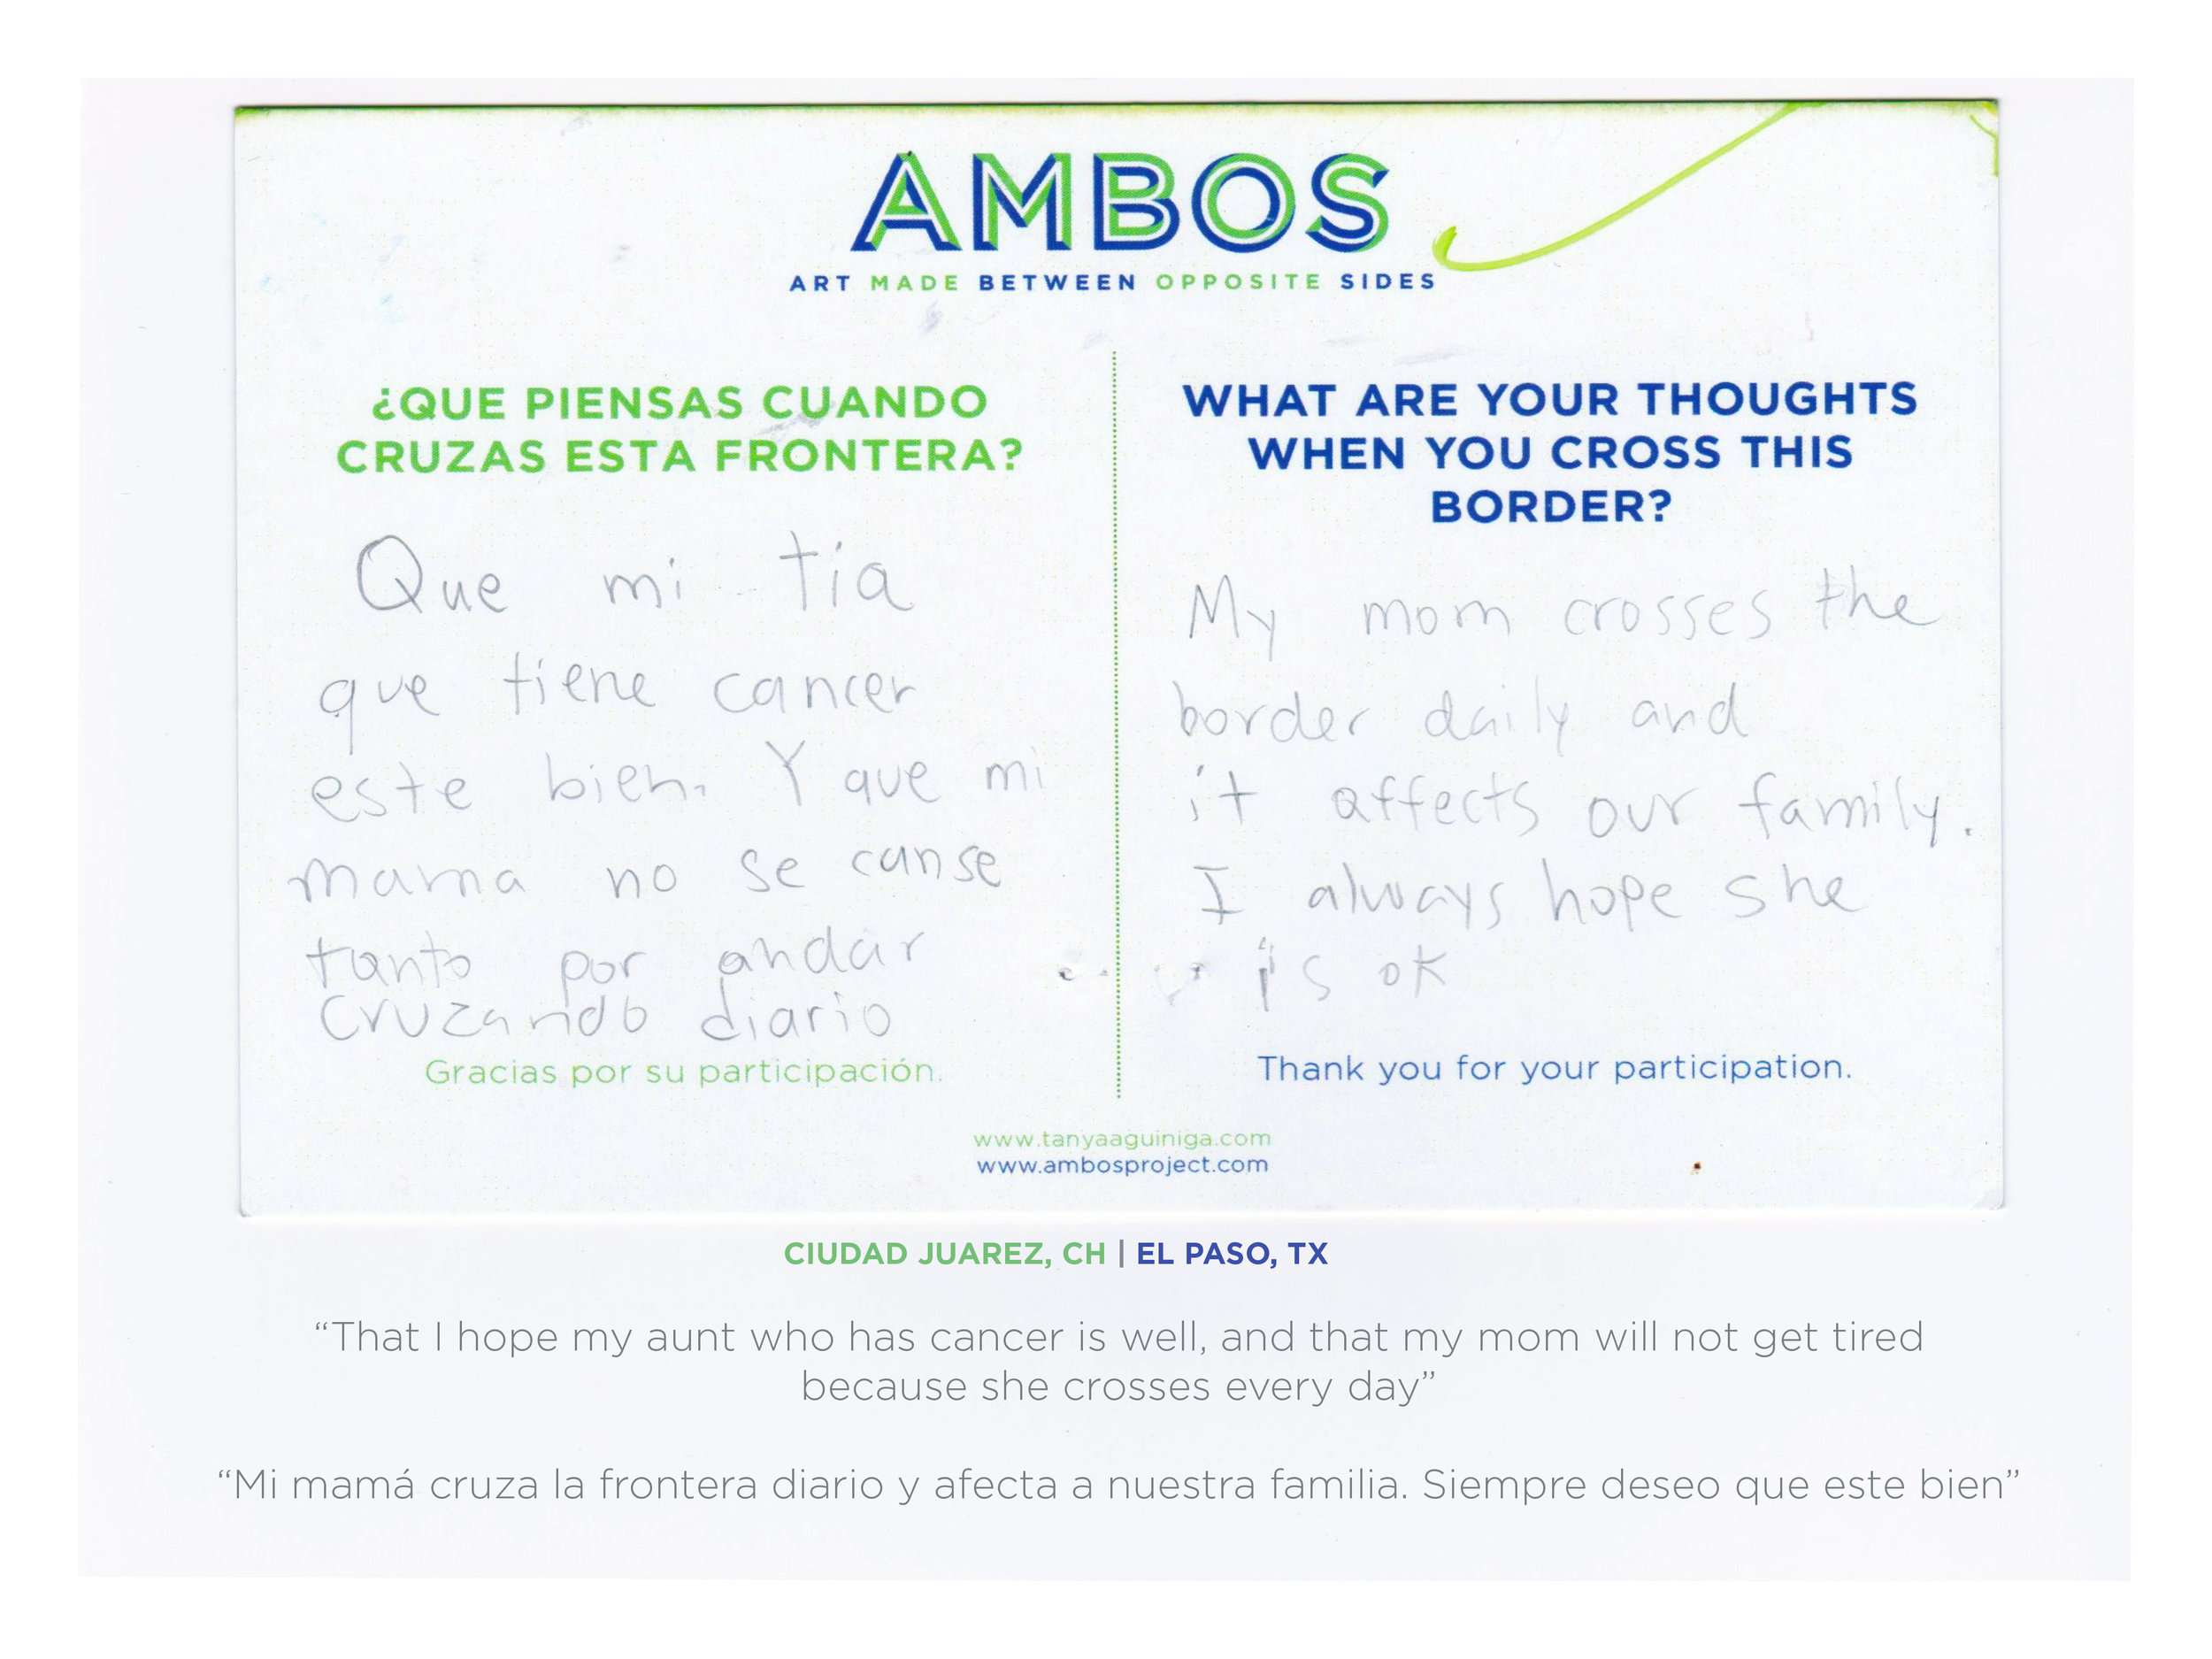 AMBOS
ART MADE BETWEEN OPPOSITE SIDES
¿QUE PIENSAS CUANDO
CRUZAS ESTA FRONTERA?
Que mi tia
que tiene cancer
este bien. Y que mi
mama no se canse
tanto por andar
cruzando diario
Gracias por su participación.
WHAT ARE YOUR THOUGHTS
WHEN YOU CROSS THIS
BORDER?
My mom crosses the
border daily and
it affects our family.
I always hope she
is ok
Thank you for your participation.
www.tanyaaguiniga.com
www.ambosproject.com
CIUDAD JUAREZ, CH | EL PASO, TX
“That I hope my aunt who has cancer is well, and that my mom will not get tired
because she crosses every day”
“Mi mamá cruza la frontera diario y afecta a nuestra familia. Siempre deseo que este bien”